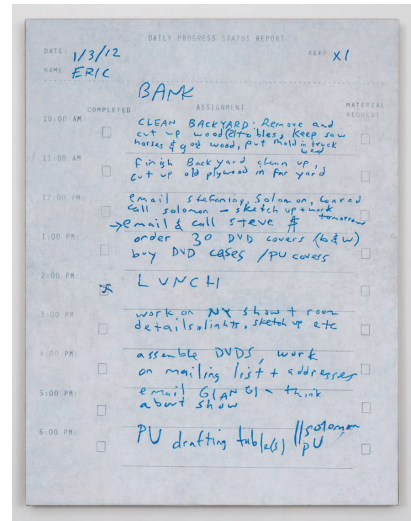 DAILY PROGRESS STATUS REPORT
DATE: 1/3/12
X1
NAME: ERIC
BANK
COMPLETED ASSIGNMENT MATERIAL REQUEST
10:00 AM CLEAN BACKYARD: Remove and
cut up wood tables, keep saw
horses & good wood, put mold in truck
bed
11:00 AM Finish Backyard clean up,
cut up old plywood in far yard
12:00 PM email stefania, Solomon, Conrad
call solomon – sketch up + work tomorrow
→ email & call steve A
1:00 PM order 30 DVD covers (b&w)
buy DVD cases / PU covers
2:00 PM LUNCH
3:00 PM work on NY show + room
details, lights, sketch up etc
4:00 PM assemble DVDS, work
on mailing list + addresses
5:00 PM email GIANGI – think
about show
6:00 PM PU drafting table(s) // solomon
PU